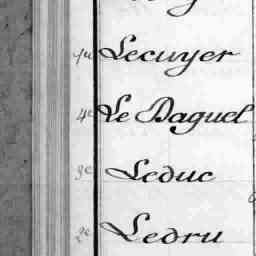 Lecuyer
4e Le Daguel
9e Leduc
2e Ledru